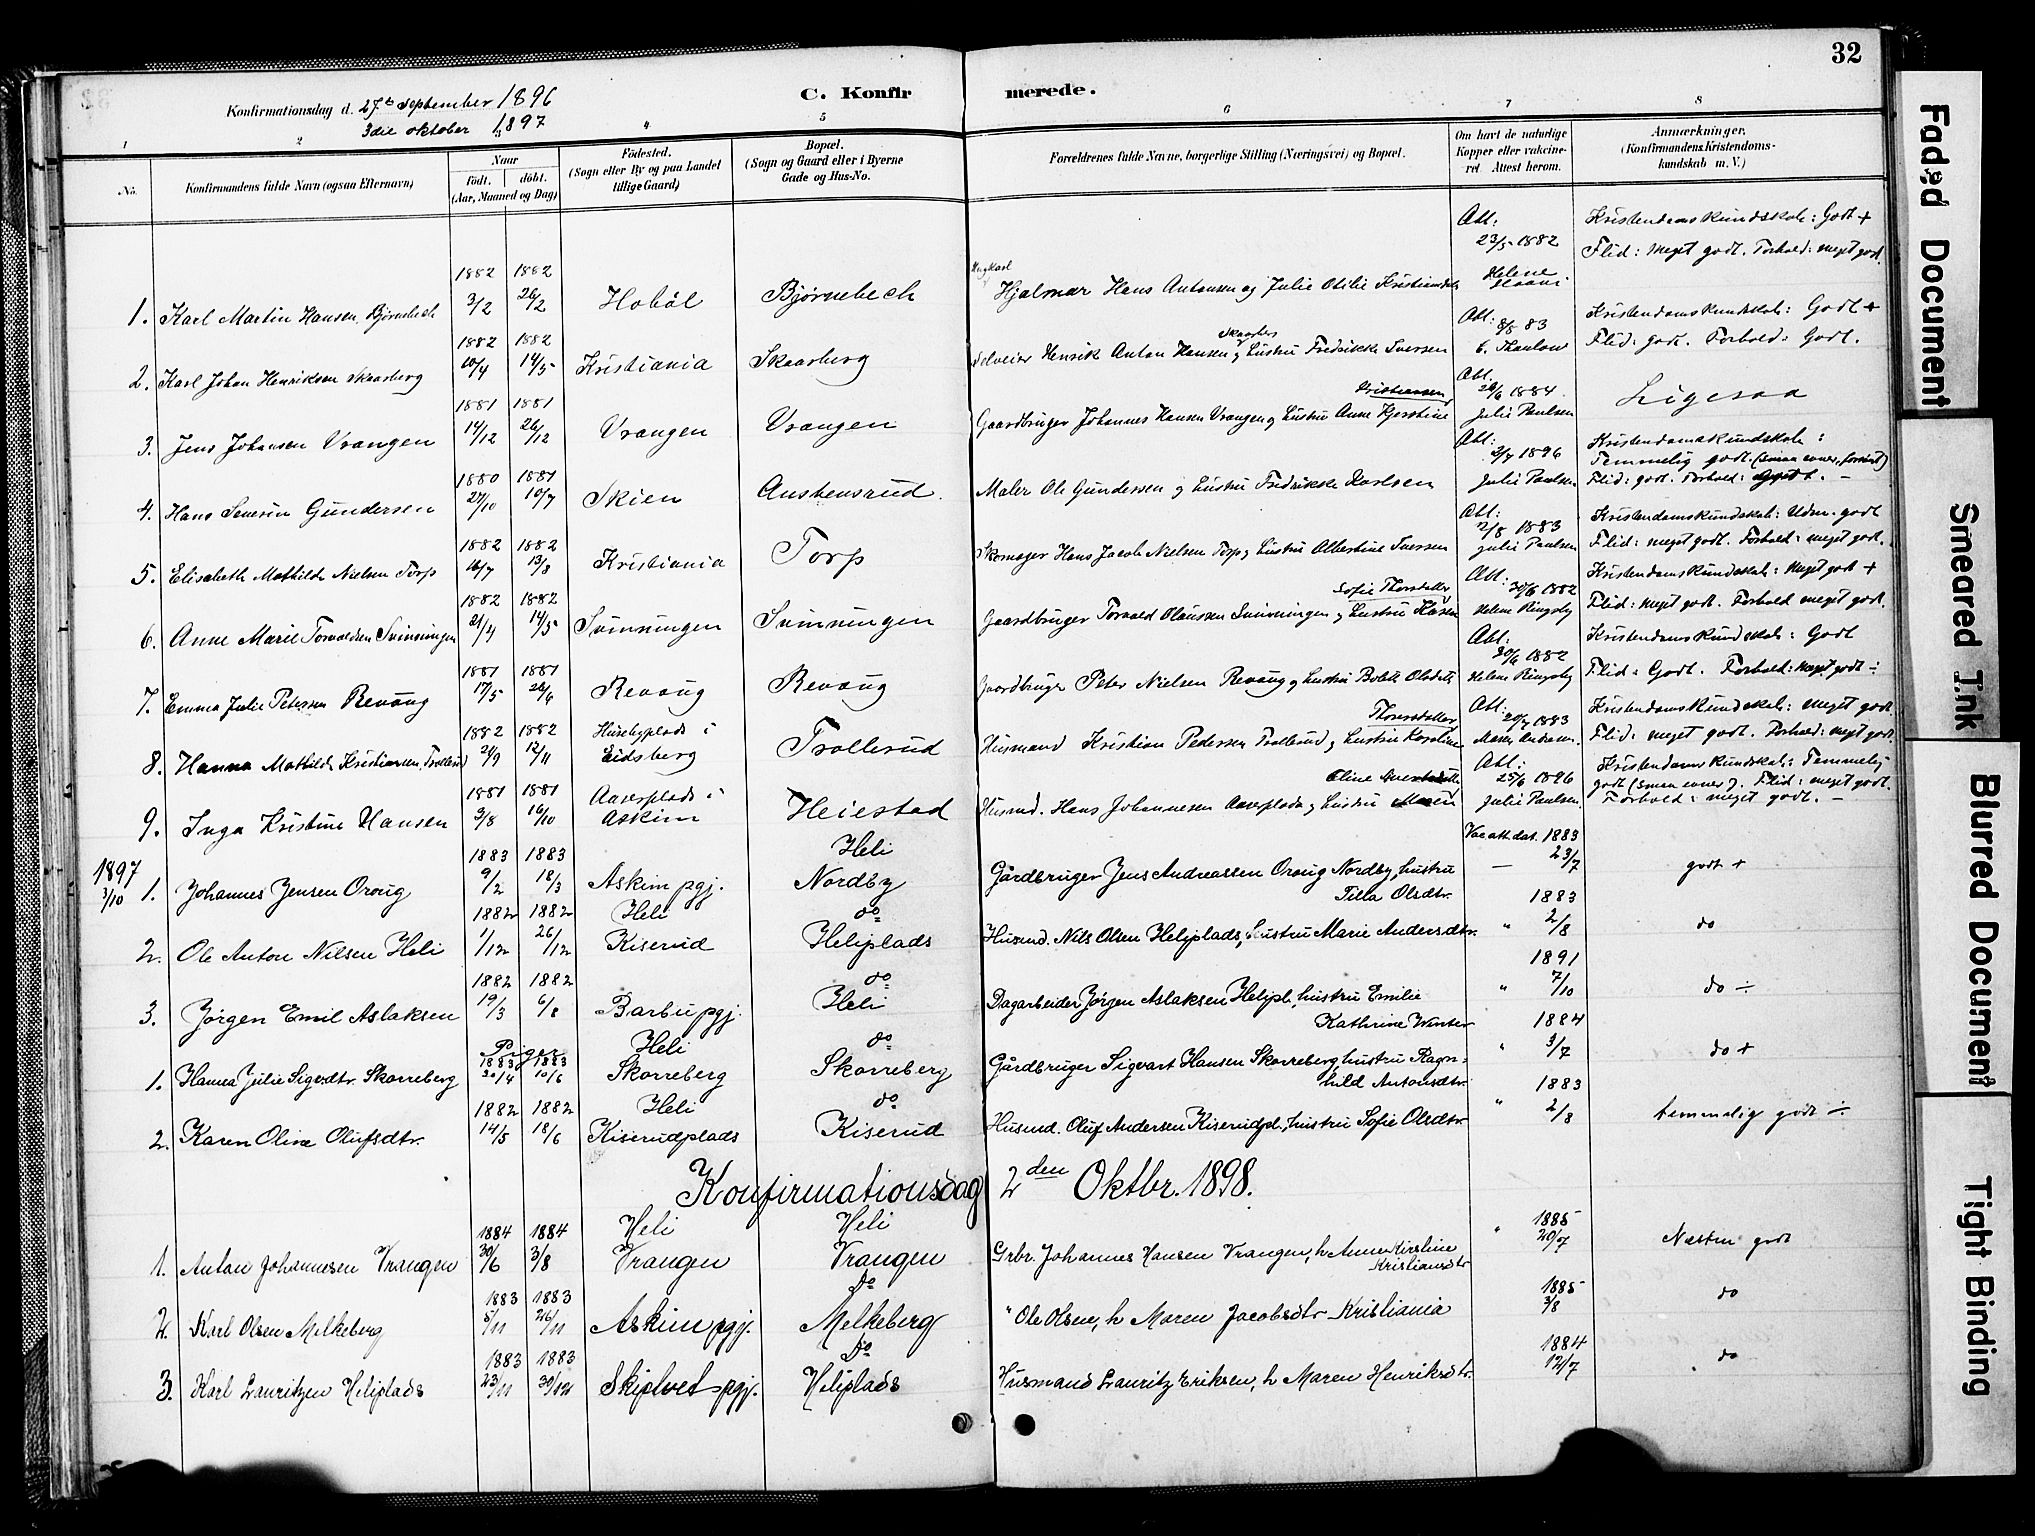 32
C. Konfirmerede.
Konfirmationsdag d. 27de September 1896
3die Oktober 1897
1 2 3 4 5 6 7 8
No. Konfirmandens fulde Navn (ogsaa Efternavn) Naar født. døbt. (Aar, Maaned og Dag) Fødested. (Sogn eller By og paa Landet tillige Gaard) Bopæl. (Sogn og Gaard eller i Byerne Gade og Hus-No. Forældrenes fulde Navne, borgerlige Stilling (Næringsvei) og Bopæl. Om havt de naturlige Kopper eller vakcineret. Attest herom. Anmærkninger. (Konfirmandens Kristendomskundskab m. V.)
1. Karl Martin Hansen Bjørnebech 1882 3/2 1882 26/2 Hobøl Bjørnebech Hjalmar Hans Antonsen og Julie Otilie Att: 23/5 1882 Helene Kristendomskundskab: Godt +
Flid: meget godt. Forhold: meget godt.
2. Karl Johan Henriksen Skaarberg 1882 10/4 1882 14/5 Kristiania Skaarberg Selveier Henrik Anton Hansen Skaarberg og Hustru Fredrikke Iversen Att: 8/8 83 Thaulow Kristendomskundskab: Godt +
Flid: godt. Forhold: Godt.
3. Jens Johansen Vrangen 1881 14/12 1881 26/12 Vrangen Vrangen Gaardbruger Johannes Hansen Vrangen og Hustru Anne Kjerstine Kristiansen Att. 1884 Julie Paulsen Ligesaa
4. Hans Severin Gundersen 1880 27/10 1881 10/7 Skien Austensrud Maler Ole Gundersen og Hustru Fredrikke Karlsen Att: 2/7 1896 Julie Paulsen Kristendomskundskab:
Temmelig godt (smaa evner, forsømt)
Flid: godt. Forhold: godt. –
5. Elisabeth Mathilde Nielsen Torp 1882 16/7 1882 13/8 Kristiania Torp Skomager Hans Jacob Nielsen Torp og Hustru Albertine Iversen Att: 2/8 1883 Julie Paulsen Kristendomskundskab: Udm. godt
Flid: meget godt. Forhold: meget godt.
6. Anne Marie Torvaldsen Svinningen 1882 21/4 1882 14/5 Svinningen Svinningen Gaardbruger Torvald Olaussen Svinningen og Hustru Sofie Att: 30/6 1882 Helene Ringsby Kristendomskundskab: Meget godt +
Flid: meget godt. Forhold meget godt.
7. Emma Julie Petersen Revoug 1881 17/5 1881 26/6 Revoug Revoug Gaardbruger Peter Nielsen Revoug og Hustru Bolette Olsdatter Att: 30/6 1882 Helene Ringsby Kristendomskundskab: Godt
Flid: Godt. Forhold: meget godt ÷
8. Hanna Mathilde Kristiansen Trollerud 1882 24/9 1882 12/11 Husebyplads i Eidsberg Trollerud Husmand Kristian Pedersen Trollerud og Hustru Karoline Thorsdatter Att: 20/7 1883 Kristendomskundskab: meget godt
Flid: meget godt. Forhold: meget godt.
9. Inga Kristine Hansen 1881 3/8 1881 16/10 Aaserplads i Askim Heiestad Husmd. Hans Johannesen Aaserplads og Hustru Oline Att: 25/6 1896 Julie Paulsen. Kristendomskundskab: Temmelig godt (smaa evner). Flid: meget godt.
Forhold: meget godt. –
1897 3/10
1. Johannes Jensen Oroug 1883 9/2 1883 18/3 Askim pgj. Heli Nordby Gårdbruger Jens Andreassen Oroug Nordby, hustru Tilla Olsdtr. Vac att. dat. 1883 23/7 godt +
2. Ole Anton Nilsen Heli 1882 1/12 1882 26/12 Heli Kiserud do Heliplads Husmd. Nils Olsen Heliplads, Hustru Marie Andersdtr. " 1883 2/8 do
3. Jørgen Emil Aslaksen 1882 19/3 1882 6/8 Barbu pgj. do Heli Dagarbeider Jørgen Aslaksen Helipl., hustru Emilie Kathrine Winter " 1891 7/10 do ÷
Piger
1. Hanna Julie Sigvdtr. Skorreberg 1883 20/4 1883 10/6 Heli Skorreberg do Skorreberg Gårdbruger Sigvart Hansen Skorreberg, hustru Ragnhild Antonsdtr. " 1884 3/7 do +
2. Karen Oline Olufsdtr. 1882 14/5 1882 18/6 Heli Kiserudplads do Kiserud Husmd. Oluf Andersen Kiserudpl., hustru Sofie Olsdtr. " 1883 2/8 temmelig godt ÷
Konfirmationsdag 2den Oktbr. 1898.
1. Anton Johannesen Vrangen 1884 30/6 1884 3/8 Heli Vrangen Heli Vrangen Grbr. Johannes Hansen Vrangen, h. Anne Kirstine Kristiansdtr " 1885 20/7 Næsten godt
2. Karl Olsen Melkeberg 1883 5/11 1883 26/11 Askim pgj. Do Melkeberg " Ole Olsen, h Maren Jacobsdtr Kristiania 1885 3/8 do
3. Karl Lauritzen Heliplads 1883 23/11 1883 30/12 Skiptvet pgj. Do Heliplads Husmand Lauritz Eriksen, h Maren Henriksdtr. 1884 12/7 do
Faded Document
Smeared Ink
Blurred Document
Tight Binding